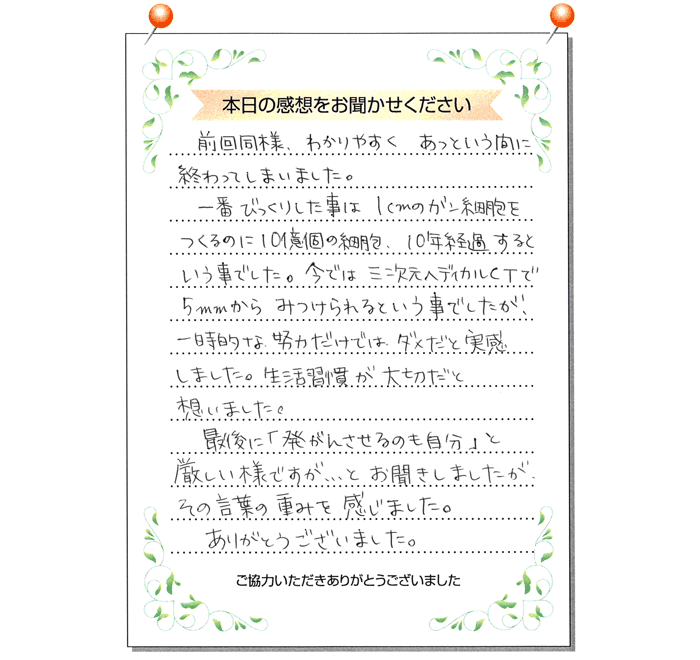 本日の感想をお聞かせください
前回同様、わかりやすく あっという間に
終わってしまいました。
一番びっくりした事は 1cmのがん細胞を
つくるのに10億個の細胞、10年経過すると
いう事でした。今では 三次元ヘディカルCTで
5mmから みつけられるという事でしたが、
一時的な 努力だけでは ダメだと実感
しました。生活習慣が 大切だと
想いました。
最後に「発がんさせるのも自分」と
厳しい様ですが…と お聞きしましたが、
その言葉の重みを 感じました。
ありがとうございました。
ご協力いただきありがとうございました